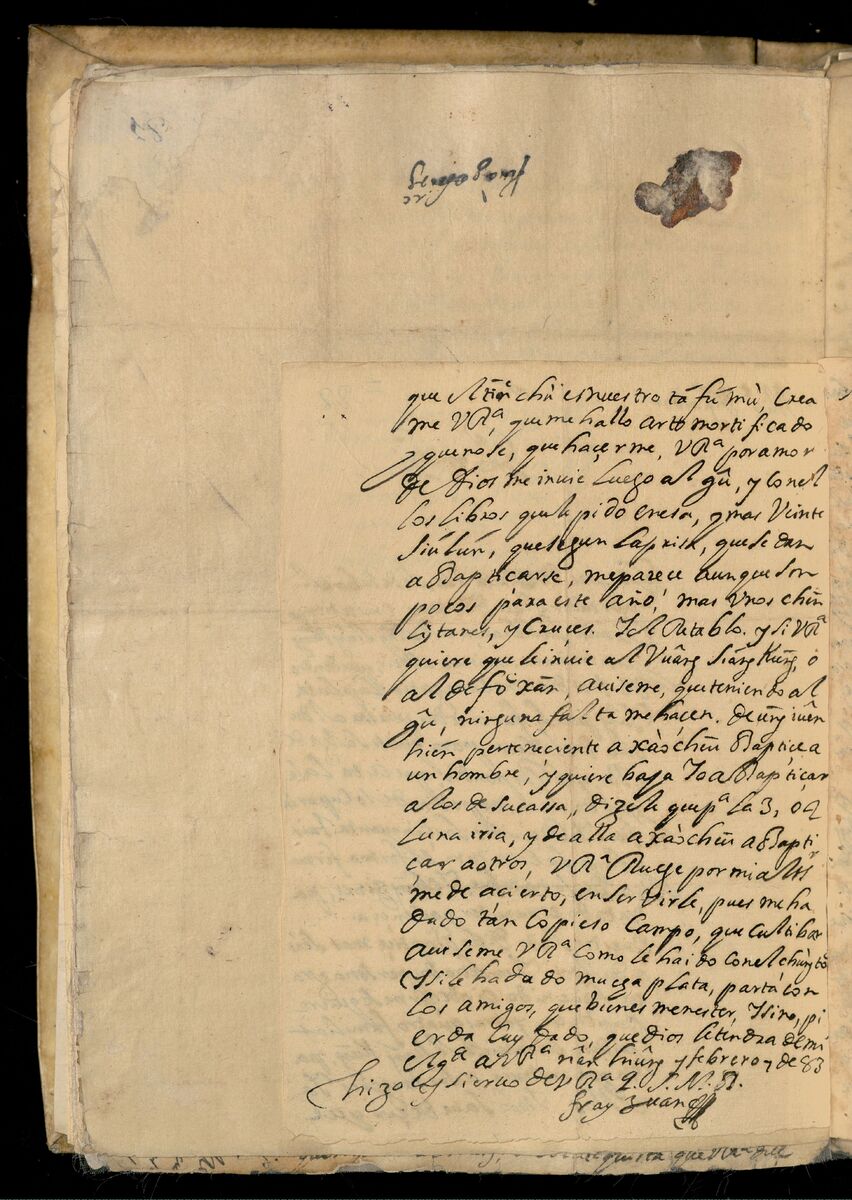 que el tiēn chù es nuestro tá fū mù, Crea
me VRª, que me hallo arto mortificado
y que no se, que haçerme, VRª por amor
de Dios me invie luego al gū, y con el
los libros que le pido en esa, y mas Veinte
siū lūn, que segun la prisa, que se dan
a Bapticarse, me parece aunque son
pocos para este año, mas vnos chin
y Cruces. Y el Retablo. y si VRª
quiere que le invie al Vuâng siāng Kūng, o
al de fô xān, auiseme, que teniendo al
gū, ninguna falta me hacen. de iuên
hién perteneciente a xáo chēu Baptice a
un hombre, y quiere baja Yo a Bapticar
a los de su cassa, dizele que pª la 3, ó 4
luna iria, y de alla a xáo chēu a Bapti
çar a otros, VRª Ruege por mi al Sr
me de acierto, en servirle, pues me ha
dado tan Copioso Campo, que cultibar
auiseme VRª como le ha ido con el chūng tŏ
Y si le ha dado mucha plata, parta con
los amigos, que bien es menester, Y sino, pi
erda cuydado, que Dios le tendra de mi
a VRª nân hiûng y febrero 7 de 83
hijo y sieruo de VRª Q. S. M. B.
fray Juan